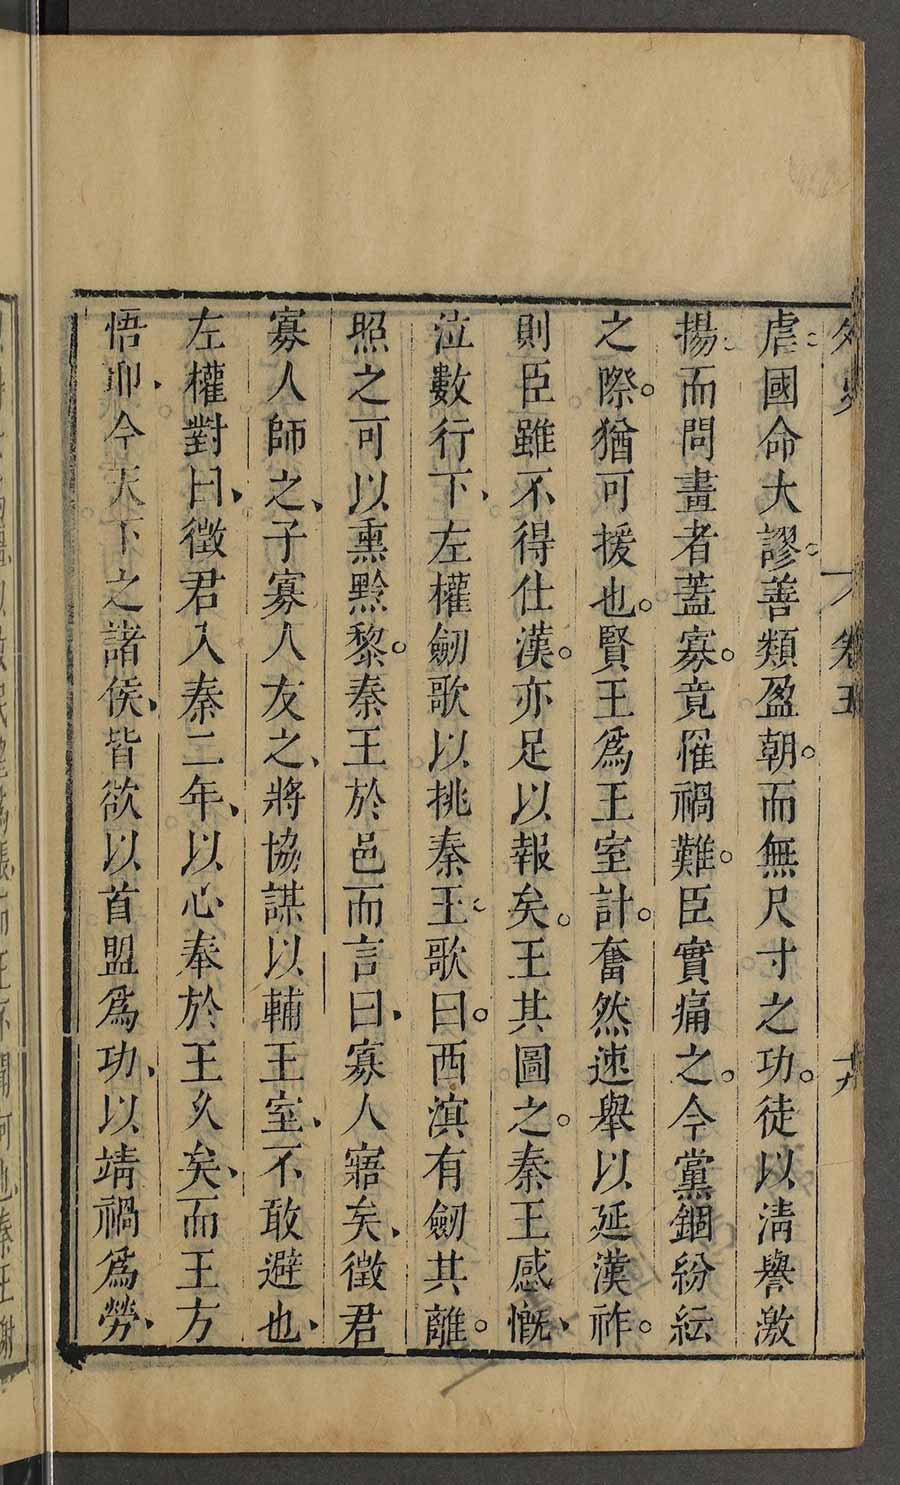 外史 卷五 十九
虐國命大謬善類盈朝而無尺寸之功徒以清譽激
揚而問畫者蓋寡竟罹禍難臣實痛之今黨錮紛紜
之際猶可援也賢王爲王室計奮然速舉以延漢祚
則臣雖不得仕漢亦足以報矣王其圖之秦王感慨
泣數行下左權劒歌以挑秦王歌曰西滇有劒其離
照之可以熏黔黎秦王於邑而言曰寡人寤矣徵君
寡人師之子寡人友之將協謀以輔王室不敢避也
左權對曰徵君入秦二年以心奉於王久矣而王方
悟耶今天下之諸侯皆欲以首盟爲功以靖禍爲勞